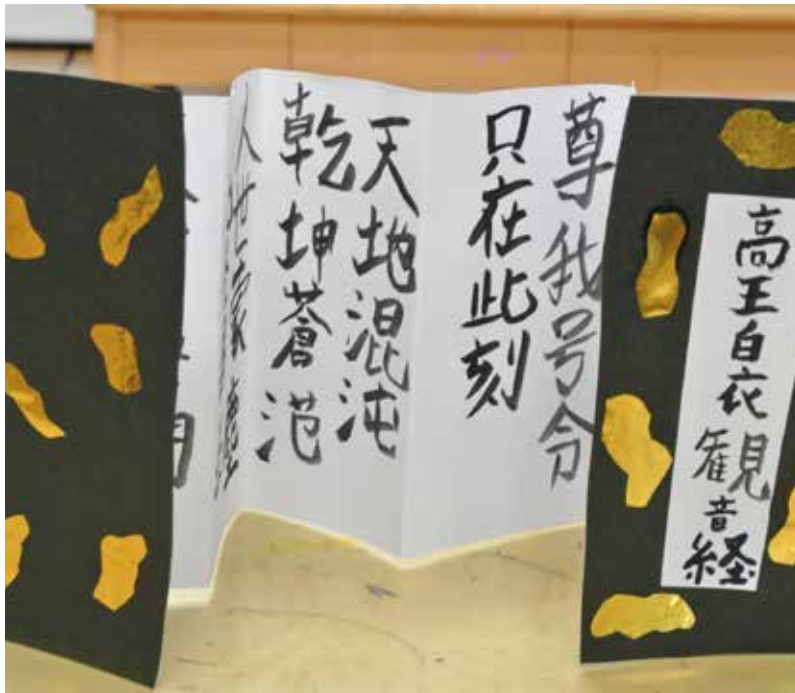 高王白衣観音経
尊我号令
只在此刻
天地混沌
乾坤蒼范
人世